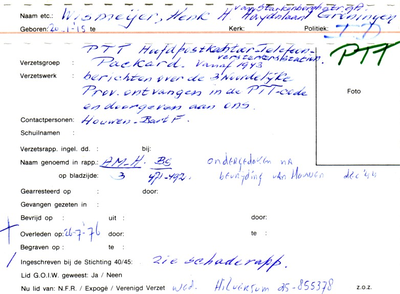 Naam etc.: Wismeijer, Henk H
Haydnlaan Groningen
Geboren: 20-1-15 te Kerk: Politiek:
PTT Hoofdpostkantoor-Telefoon-
versterkerstation
Verzetsgroep Packard. vanaf 1943
PTT
Verzetswerk berichten over de 3 Noordelijke
Prov. ontvangen in de PTT-code
en doorgeven aan ons.
Foto
Contactpersonen: Houwen-Bart F.
Schuilnaam :
Verzetsrapp. ingel. dd. : bij:
Naam genoemd in rapp.: AM-H. BS ondergedoken na
op bladzijde: 3 491-492. bevrijding van Houwen dec '44
Gearresteerd op : door:
Gevangen gezeten in :
Bevrijd op : uit : door:
+ Overleden op: 26-7-'76 te : door:
Begraven op : te :
Ingeschreven bij de Stichting 40/45: zie schaderapp.
Lid G.O.I.W. geweest: Ja / Neen
Nu lid van: N.F.R. / Expogé / Verenigd Verzet wed. Hilversum 35-855378 z.o.z.